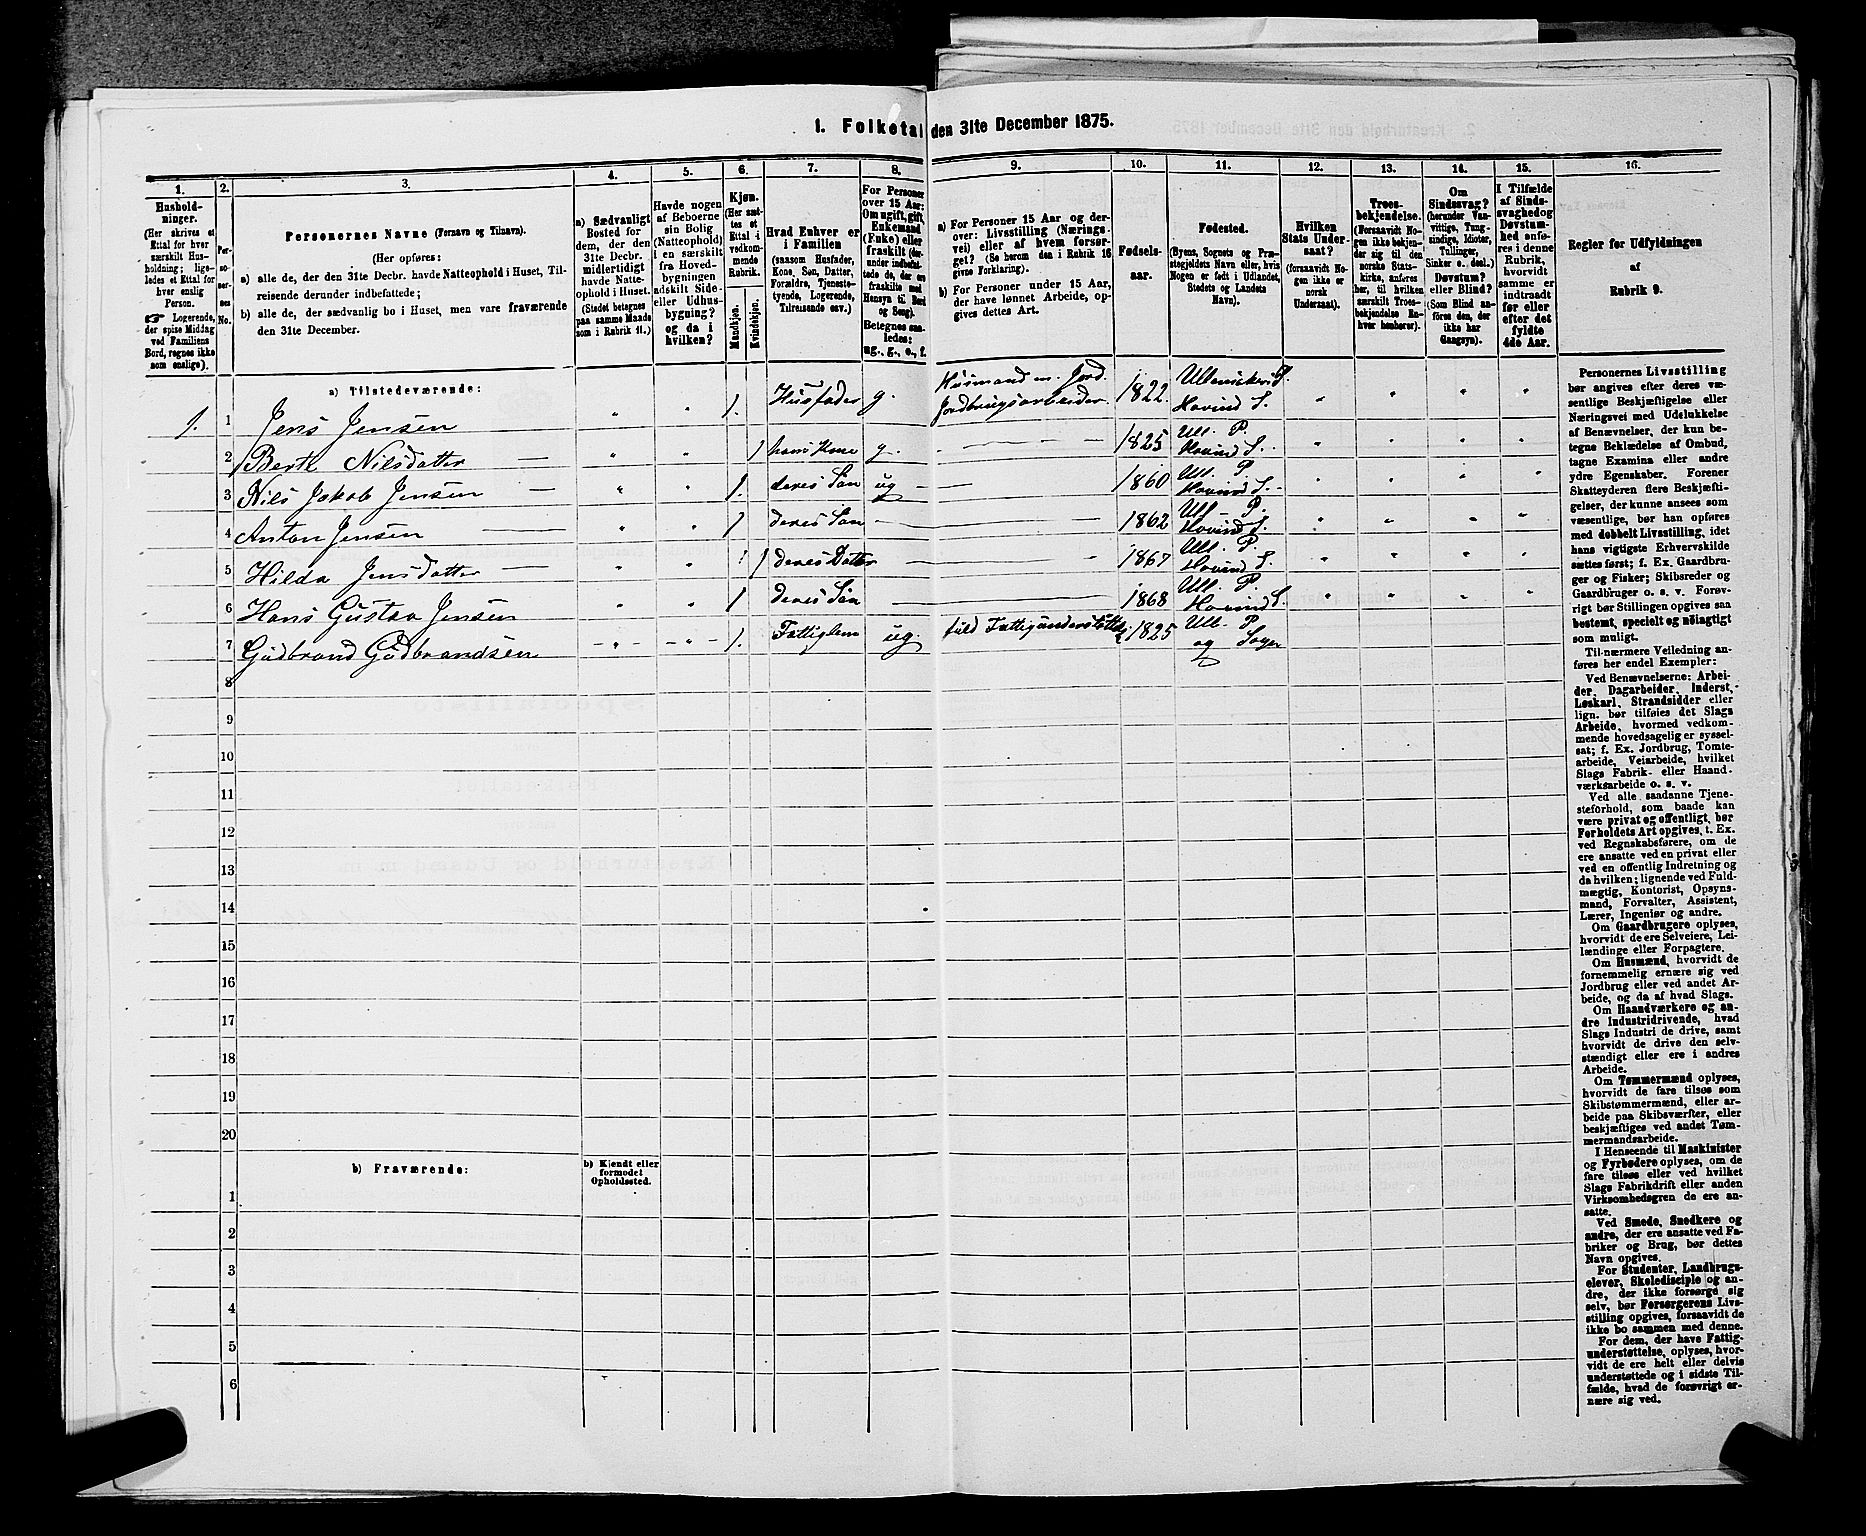 1. Folketal den 31te December 1875.
1.
2.
3.
4.
5.
6.
7.
8.
9.
10.
11.
12.
13.
14.
15.
16.
Hushold-
ninger.
(Her skrives et
Ettal for hver
særskilt Hus-
holdning; lige-
ledes et Ettal for
hver enslig
Person.
☞ Logerende,
der spise Middag
ved Familiens
Bord, regnes ikke
som enslige).
Per-
so-
ner-
nes
No.
Personernes Navne (Fornavn og Tilnavn).
(Her opføres:
a) alle de, der den 31te Decbr. havde Natteophold i Huset, Til-
reisende derunder indbefattede;
b) alle de, der sædvanlig bo i Huset, men vare fraværende
den 31te December.
a) Sædvanligt
Bosted for
dem, der den
31te Decbr.
midlertidigt
havde Natte-
ophold i Huset.
(Stedet betegnes
paa samme Maade
som i Rubrik 11.)
Havde nogen
af Beboerne
sin Bolig
(Natteophold)
i en særskilt
fra Hoved-
bygningen
adskilt Side-
eller Udhus-
bygning?
og da i
hvilken?
Kjøn.
(Her sæt-
tes et
Ettal i
vedkom-
mende
Rubrik.
Mandkjøn.
Kvindekjøn.
Hvad Enhver er
i Familien
(saasom Husfader,
Kone, Søn, Datter,
Forældre, Tjeneste-
tyende, Logerende,
Tilreisende osv.)
For Personer
over 15 Aar:
Om ugift, gift,
Enkemand
(Enke) eller
fraskilt (her-
under indbefat-
tede de, der ere
fraskilte med
Hensyn til Bord
og Seng).
Betegnes saa-
ledes:
ug., g., e., f.
a) For Personer 15 Aar og der-
over: Livsstilling (Nærings-
vei) eller af hvem forsør-
get? (Se herom den i Rubrik 16
givne Forklaring).
b) For Personer under 15 Aar,
der have lønnet Arbeide, op-
gives dettes Art.
Fødsels-
aar.
Fødested.
(Byens, Sognets og Præ-
stegjeldets Navn eller, hvis
Nogen er født i Udlandet,
Stedets og Landets
Navn).
Hvilken
Stats Under-
saat?
(foraavidt No-
gen ikke er
norsk
Undersaat).
Troes-
bekjendelse.
(Forsaavidt No-
gen ikke bekjen-
der sig til den
norske Stats-
kirke, anføres
her, til hvilken
særskilt Troes-
bekjendelse En-
hver henhører).
Om
Sindssvag?
(herunder Van-
vittige, Tung-
sindige, Idioter,
Tullinger,
Sinker o. desl.)
Døvstum?
eller Blind?
(Som Blind an-
føres den, der
ikke har
Gangsyn).
I Tilfælde
af Sinds-
svaghed og
Døvstum-
hed anfø-
res i denne
Rubrik,
hvorvidt
samme er
indtraadt
før eller
efter det
fyldte
4de Aar.
Regler for Udfyldningen
af
Rubrik 9.
a) Tilstedeværende:
1. 1 Jens Jensen " " 1. Husfader g. Husmand m. Jord. Jordbrugsarbeider 1822. Hovind S. " " " "
2 Berte Nilsdatter — " " 1 hans Kone g. — 1825 Ull. P. Hovind S. " " " "
3 Nils Jakob Jensen — " " 1. deres Søn ug — 1860 Ull. P. Hovind S. " " " "
4 Anton Jensen — " " 1 deres Søn — 1862 Ull. P. Hovind S. " " " "
5 Hilda Jensdatter — " " 1 deres Datter — 1867 Ull. P. Hovind S. " " " "
6 Hans Gustav Jensen " " 1 deres Søn — 1868 Ull. P. Hovind S. " " " "
7 Gudbrand Gudbrandsen — " — — " — 1. Fattiglem ug. fuld Fattigunderstøttelse 1825 Ull. P. og Sogn
8
9
10
11
12
13
14
15
16
17
18
19
20
b) Fraværende:
b) Kjendt eller
formodet
Opholdssted.
1
2
3
4
5
6
Personernes Livsstilling
bør angives efter deres væ-
sentlige Beskjæftigelse eller
Næringsvei med Udelukkelse
af Benævnelser, der kun be-
tegne Beklædelse af Ombud,
tagne Examina eller andre
ydre Egenskaber. Forener
Skatteyderen flere Beskjæfti-
gelser, der kunne ansees som
væsentlige, bør han opføres
med dobbelt Livsstilling, idet
hans vigtigste Erhvervskilde
sættes først; f. Ex. Gaardbru-
ger og Fisker; Skibsreder og
Gaardbruger o. s. v. Forøv-
rigt bør Stillingen opgives saa
bestemt, specielt og nøiagtigt
som muligt.
Til nærmere Veiledning an-
føres her endel Exempler:
Ved Benævnelserne: Arbei-
der, Dagarbeider, Inderst,
Løskarl, Strandsidder eller
lign. bør tilføies det Slags
Arbeide, hvormed vedkom-
mende hovedsagelig er syssel-
sat; f. Ex. Jordbrug, Tomte-
arbeide, Veiarbeide, hvilket
Slags Fabrik- eller Haand-
værksarbeide o. s. v.
Ved alle saadanne Tjene-
steforhold, som baade kan
være privat og offentligt, bør
Forholdets Art opgives, t. Ex.
ved Regnskabsførere, om de
ere ansatte ved en privat eller
ved en offentlig Indretning og
da hvilken; lignende ved Fuld-
mægtig, Kontorist, Opsyns-
mand, Forvalter, Assistent,
Lærer, Ingeniør og andre.
Om Gaardbrugere oplyses,
hvorvidt de ere Selveiere, Lei-
lændinge eller Forpagtere.
Om Husmænd, hvorvidt de
fornemmelig ernære sig ved
Jordbrug eller ved andet Ar-
beide, og da af hvad Slags.
Om Haandværkere og an-
dre Industridrivende, hvad
Slags Industri de drive, samt
hvorvidt de drive den selv-
stændigt eller ere i andres
Arbeide.
Om Tømmermænd oplyses,
hvorvidt de fare tilsøs som
Skibstømmermænd, eller ar-
beide paa Skibsværfter, eller
beskjæftiges ved andet Tøm-
mermandsarbeide.
I Henseende til Maskinister
og Fyrbødere oplyses, om de
fare tilsøs eller ved hvilket
Slags Fabrikdrift eller anden
Virksomhedsgren de ere an-
satte.
Ved Smede, Snedkere og
andre, der ere ansatte ved Fa-
briker og Brug, bør dettes
Navn opgives.
For Studenter, Landbrugs-
elever, Skoledisciple og an-
dre, der ikke forsørge sig
selv, bør Forsørgerens Livs-
stilling opgives, forsaavidt de
ikke bo sammen med denne.
For dem, der have Fattig-
understøttelse, oplyses, hvor-
vidt de ere helt eller delvis
understøttede og i sidste Til-
fælde, hvad de forøvrigt er-
nære sig ved.